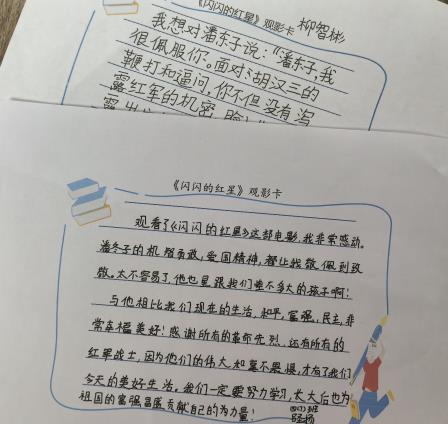 《闪闪的红星》观影卡 柳智彬
我想对潘东子说："潘东子,我
很佩服你。面对胡汉三的
鞭打和逼问,你不但没有泻
露红军的机密,脸
露出
《闪闪的红星》观影卡
观看了《闪闪的红星》这部电影,我非常感动。
潘冬子的机智勇敢,爱国精神,都让我敬佩到致
敬。太不容易了,他也是跟我们差不多大的孩子啊!
与他相比我们现在的生活,和平,富强,民主,非
常幸福美好!感谢所有的革命先烈,还有所有的
红军战士,因为他们的伟大,和坚不畏惧,才有了我们
今天的美好生活。我们一定要努力学习,长大后也为
祖国的富强昌盛贡献自己的力量!
班